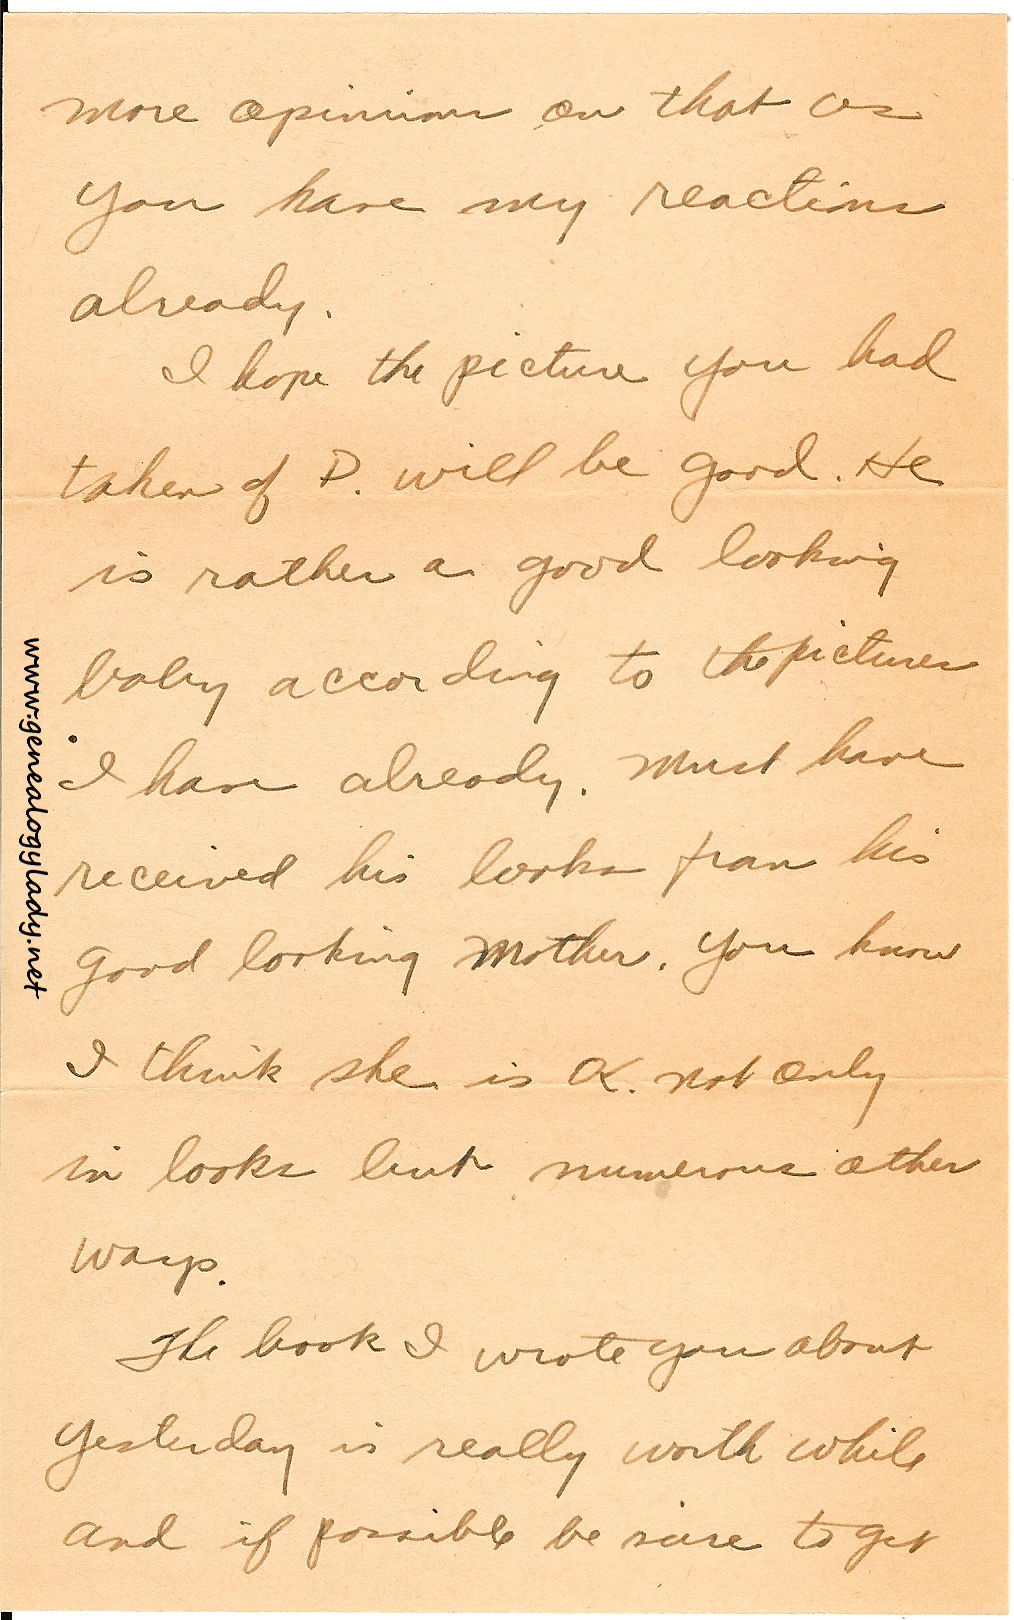 more opinions on that as
you have my reactions
already.
I hope the picture you had
taken of D. will be good. He
is rather a good looking
baby according to the pictures
I have already. Must have
received his looks from his
good looking Mother. You know
I think she is OK. not only
in looks but numerous other
ways.
The book I wrote you about
yesterday is really worth while
and if possible be sure to get
www.genealogylady.net